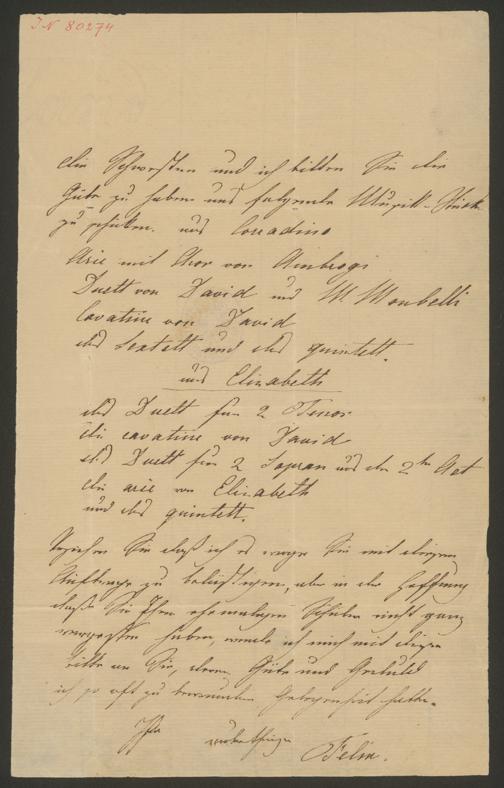 IN 80274
die Schwestern und ich bitten Sie die
Güte zu haben uns folgende Musik-Stücke
zu schicken. aus Corradino
Arie mit Chor von Ambrogi
Duett von David und M. Monbelli
Cavatine von David
das Sextett und das quintett.
aus Elisabeth
das Duett für 2 Tenor
die cavatine von David
das Duett für 2 Sopran aus den 2ten Act
die arie von Elisabeth
und das quintett.
Sie daß ich es wage Sie mit diesem
Auftrage zu belästigen, aber in der Hoffnung
daß Sie Ihren ehemaligen Schüler nicht ganz
vergessen haben, wende ich mich mit dieser
bitte an Sie, deren Güte und Geduld
ich so oft zu bewundern Gelegenheit hatte.
Ihr